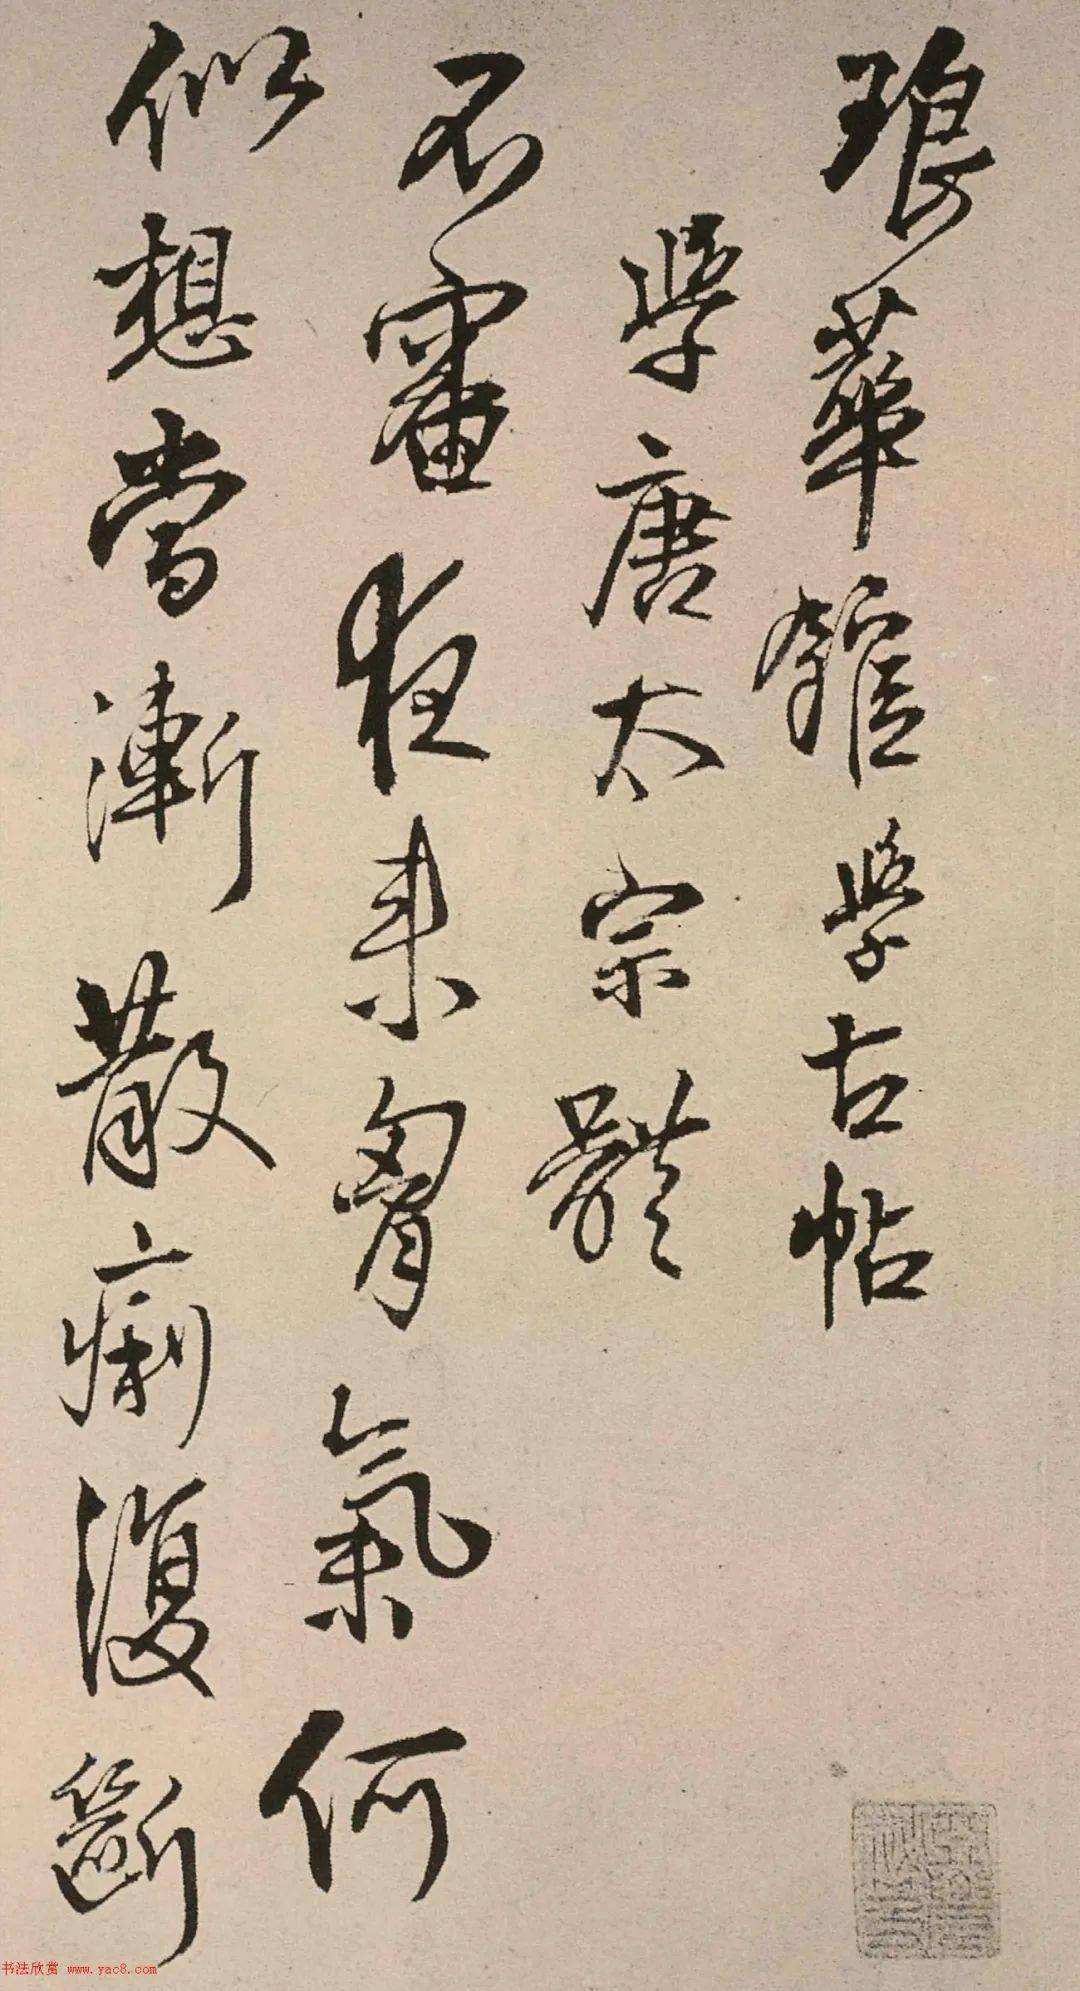 琅華館學古帖
學唐太宗體
不審夜來胷氣何
似想當漸散痢復斷
书法欣赏 www.yac8.com